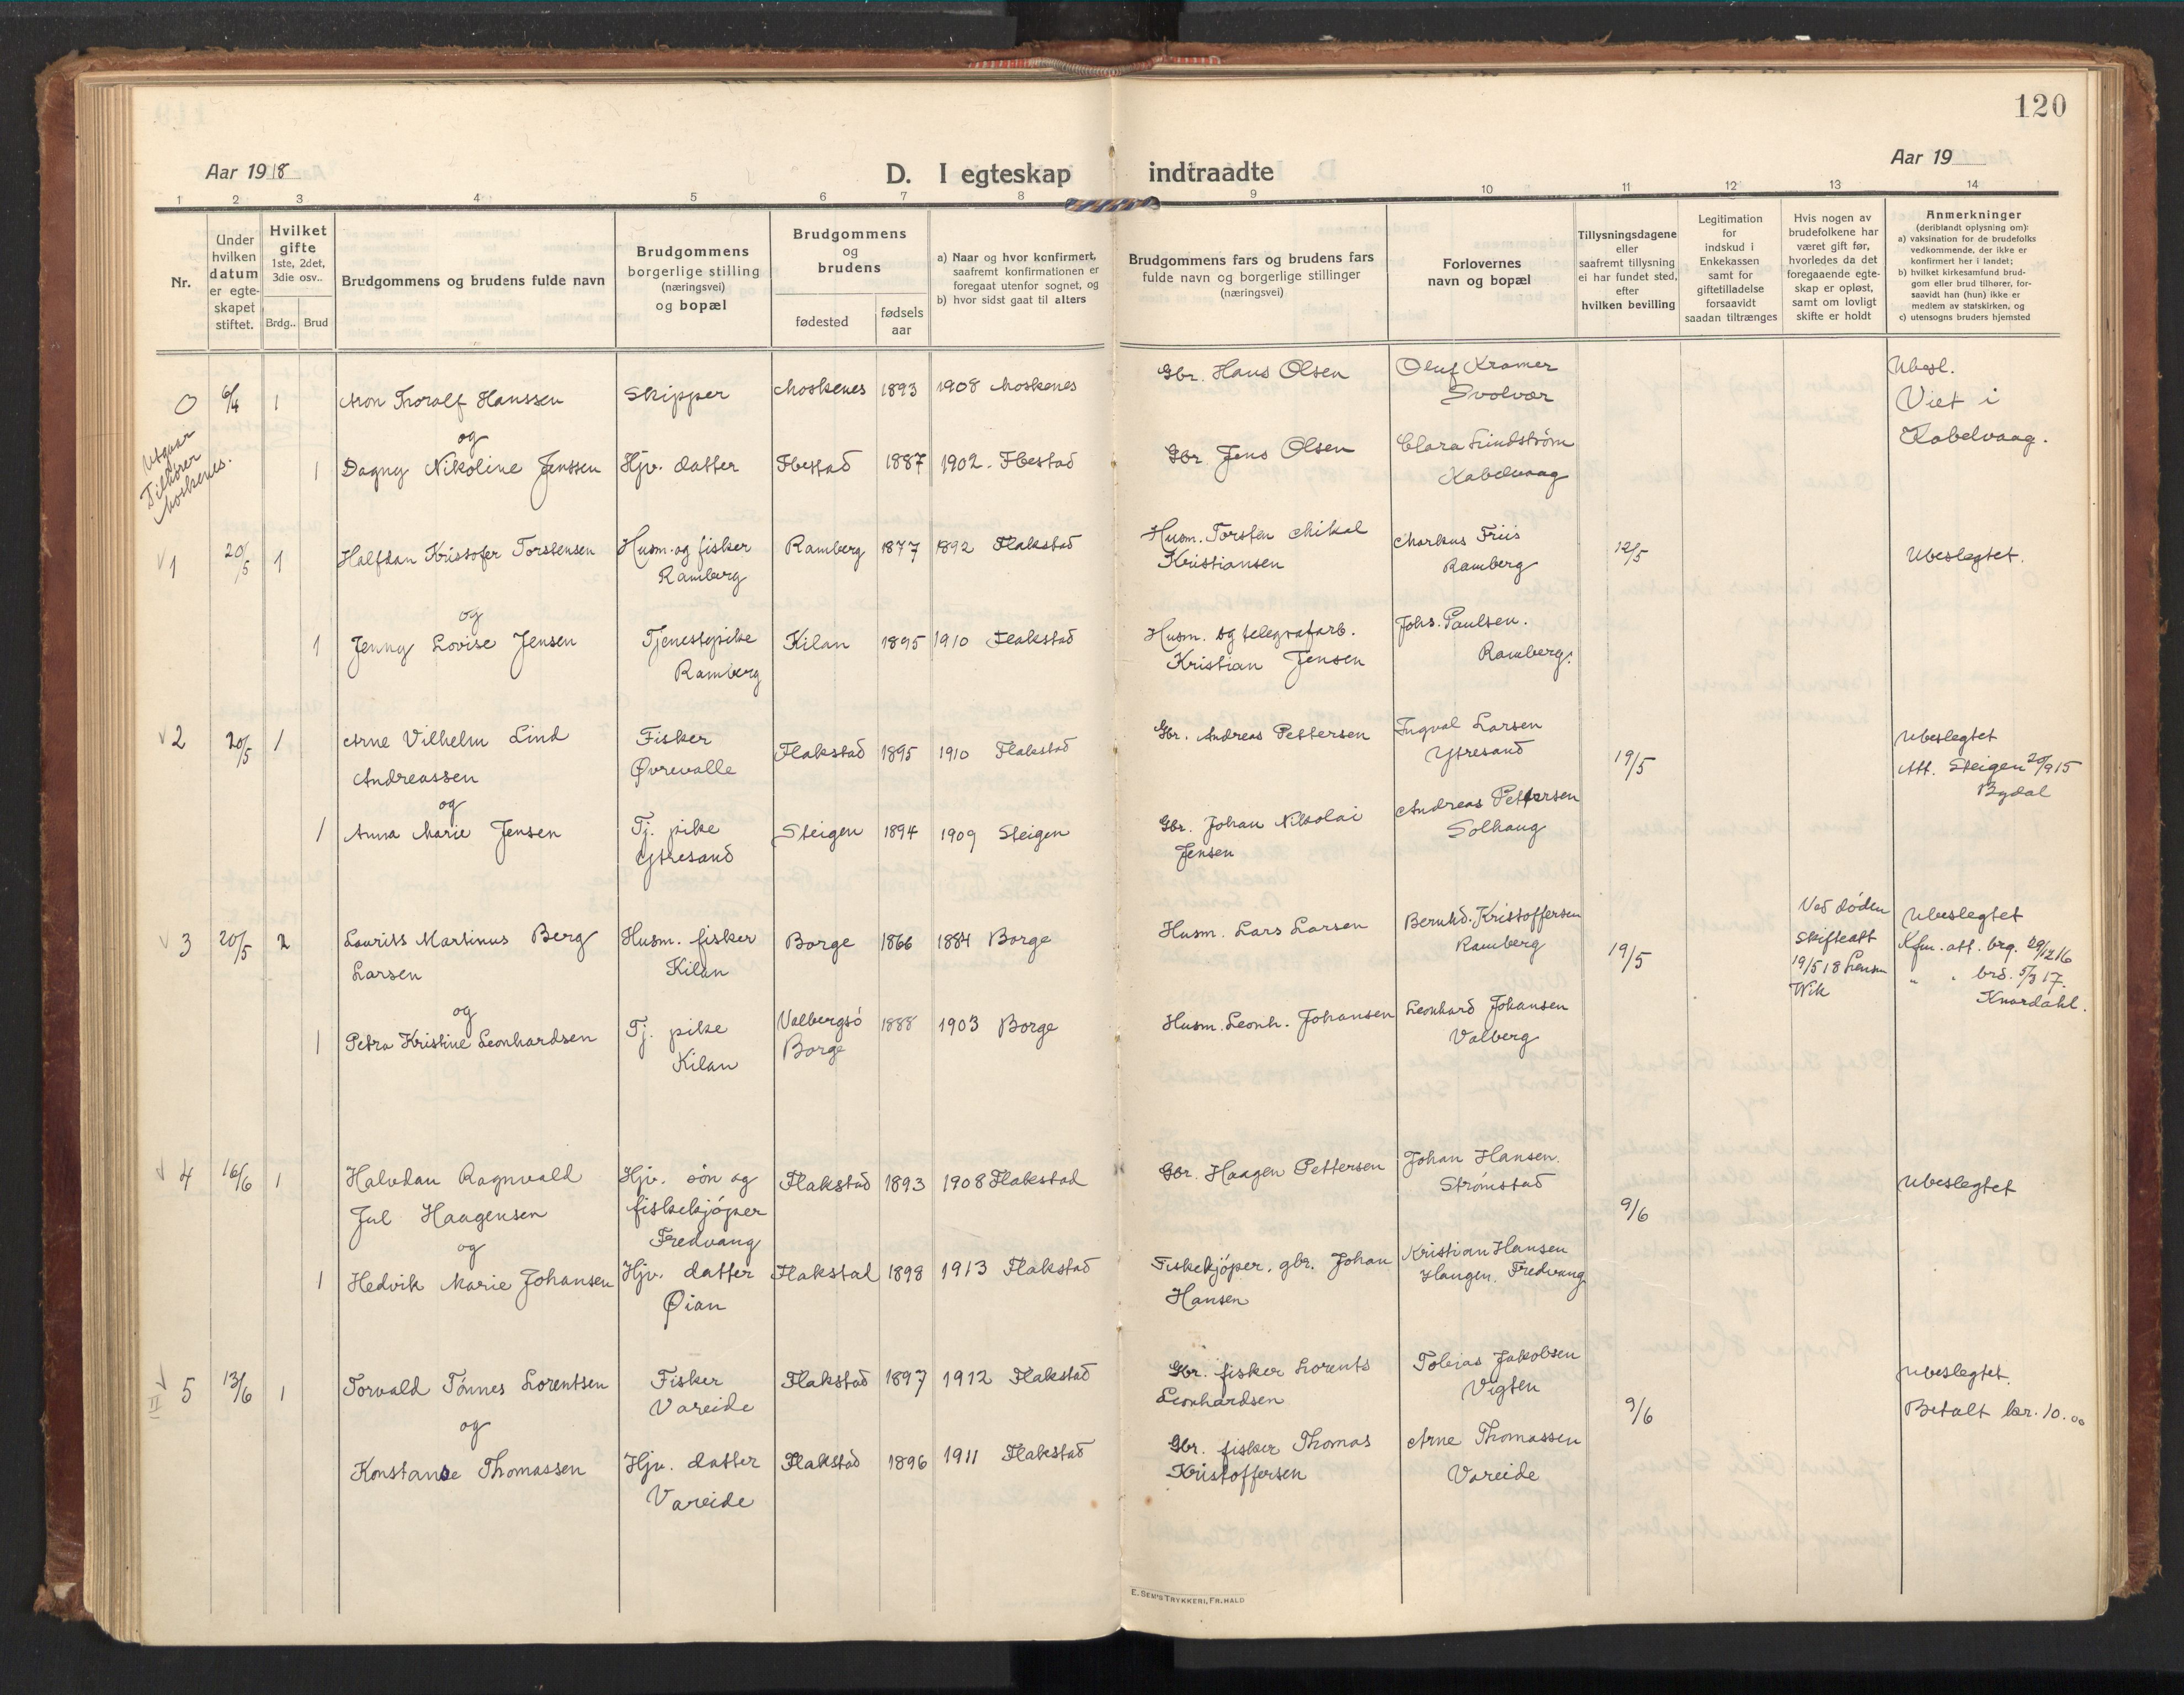 120
Aar 1918
D. I egteskap indtraadte
Aar 19
1 2 3 4 5 6 7 8 9 10 11 12 13 14
Nr.
Under hvilken datum er egte-skapet stiftet.
Hvilket gifte 1ste, 2det, 3die osv..
Brdg.. Brud
Brudgommens og brudens fulde navn
Brudgommens borgerlige stilling (næringsvei) og bopæl
Brudgommens og brudens
fødested
fødsels aar
a) Naar og hvor konfirmert, saafremt konfirmationen er foregaat utenfor sognet, og
b) hvor sidst gaat til alters
Brudgommens fars og brudens fars fulde navn og borgerlige stillinger (næringsvei)
Forlovernes navn og bopæl
Tillysningsdagene eller saafremt tillysning ei har fundet sted, efter hvilken bevilling
Legitimation for indskud i Enkekassen samt for giftetilladelse forsaavidt saadan tiltrænges
Hvis nogen av brudefolkene har været gift før, hvorledes da det foregaaende egte-skap er opløst, samt om lovligt skifte er holdt
Anmerkninger (deriblandt oplysning om):
a) vaksination for de brudefolks vedkommende, der ikke er konfirmert her i landet;
b) hvilket kirkesamfund brud-gom eller brud tilhører, for-saavidt han (hun) ikke er medlem av statskirken, og
c) utensogns bruders hjemsted
0 6/4 1 Aron Thoralf Hanssen Skipper Moskenes 1893 1908 Moskenes Gbr. Hans Olsen Oluf Kramer Svolvær Ubesl. Viet i Kabelvaag.
Utgaar Tilhörer Moskenes.
og
1 Dagny Nikoline Jenssen Hjv. datter Ibestad 1887 1902. Ibestad Gbr. Jens Olsen Clara Lindström Kabelvaag
1 20/5 1 Halfdan Kristofer Torstensen Husm. og fisker Ramberg Ramberg 1877 1892 Flakstad Husm. Torsten Mikal Kristiansen Markus Friis Ramberg 12/5 Ubeslegtet.
og
1 Jenny Lovise Jensen Tjenestepike Ramberg Kilan 1895 1910 Flakstad Husm. og telegrafarb. Kristian Jensen Johs. Paulsen. Ramberg.
2 20/5 1 Arne Vilhelm Lind Andreassen Fisker Øvrevolle Flakstad 1895 1910 Flakstad Gbr. Andreas Pettersen Ingval Larsen Ytresand 19/5 Ubeslegtet Att. Steigen 20/9 15 Bydal
og
1 Anna Marie Jensen Tj. pike Ytresand Steigen 1894 1909 Steigen Gbr. Johan Nikolai Jensen Andreas Pettersen Solhaug
3 20/5 2 Lauriss Martinus Berg Larsen Husm. fisker Kilan Borge 1866 1884 Borge Husm. Lars Larsen Bernhd. Kristoffersen Ramberg 19/5 Ved döden Skifteatt 19/5 18 Lensm Wik Ubeslegtet Kfm. att. brg. 29/12 16 " " brd. 5/3 17. Knardahl.
og
1 Petra Kristine Leonhardsen Tj. pike Kilan Valbergsö Borge 1888 1903 Borge Husm. Leonh. Johansen Leonhard Johansen Valberg
4 16/6 1 Halvdan Ragnvald Jul Haagensen Hjv. sön og fiskekjöper Fredvang Flakstad 1893 1908 Flakstad Gbr. Haagen Pettersen Johan Hansen. Strömstad 9/6 Ubeslegtet
og
1 Hedvik Marie Johansen Hjv. datter Øian Flakstad 1898 1913 Flakstad Fiskekjöper, gbr. Johan Hansen Kristian Hansen Haugen. Fredvang
II 5 13/6 1 Torvald Tönnes Lorentsen Fisker Vareide Flakstad 1897 1912 Flakstad Gbr. fisker Lorents Leonhardsen Tobias Jakobsen Vigten 9/6 Ubeslegtet. Betalt kr. 10.00
og
Konstanse Thomassen Hjv. datter Vareide Flakstad 1896 1911 Flakstad Gbr. fisker Thomas Kristoffersen Arne Thomassen Vareide
E. SEM'S TRYKKERI, FR.HALD